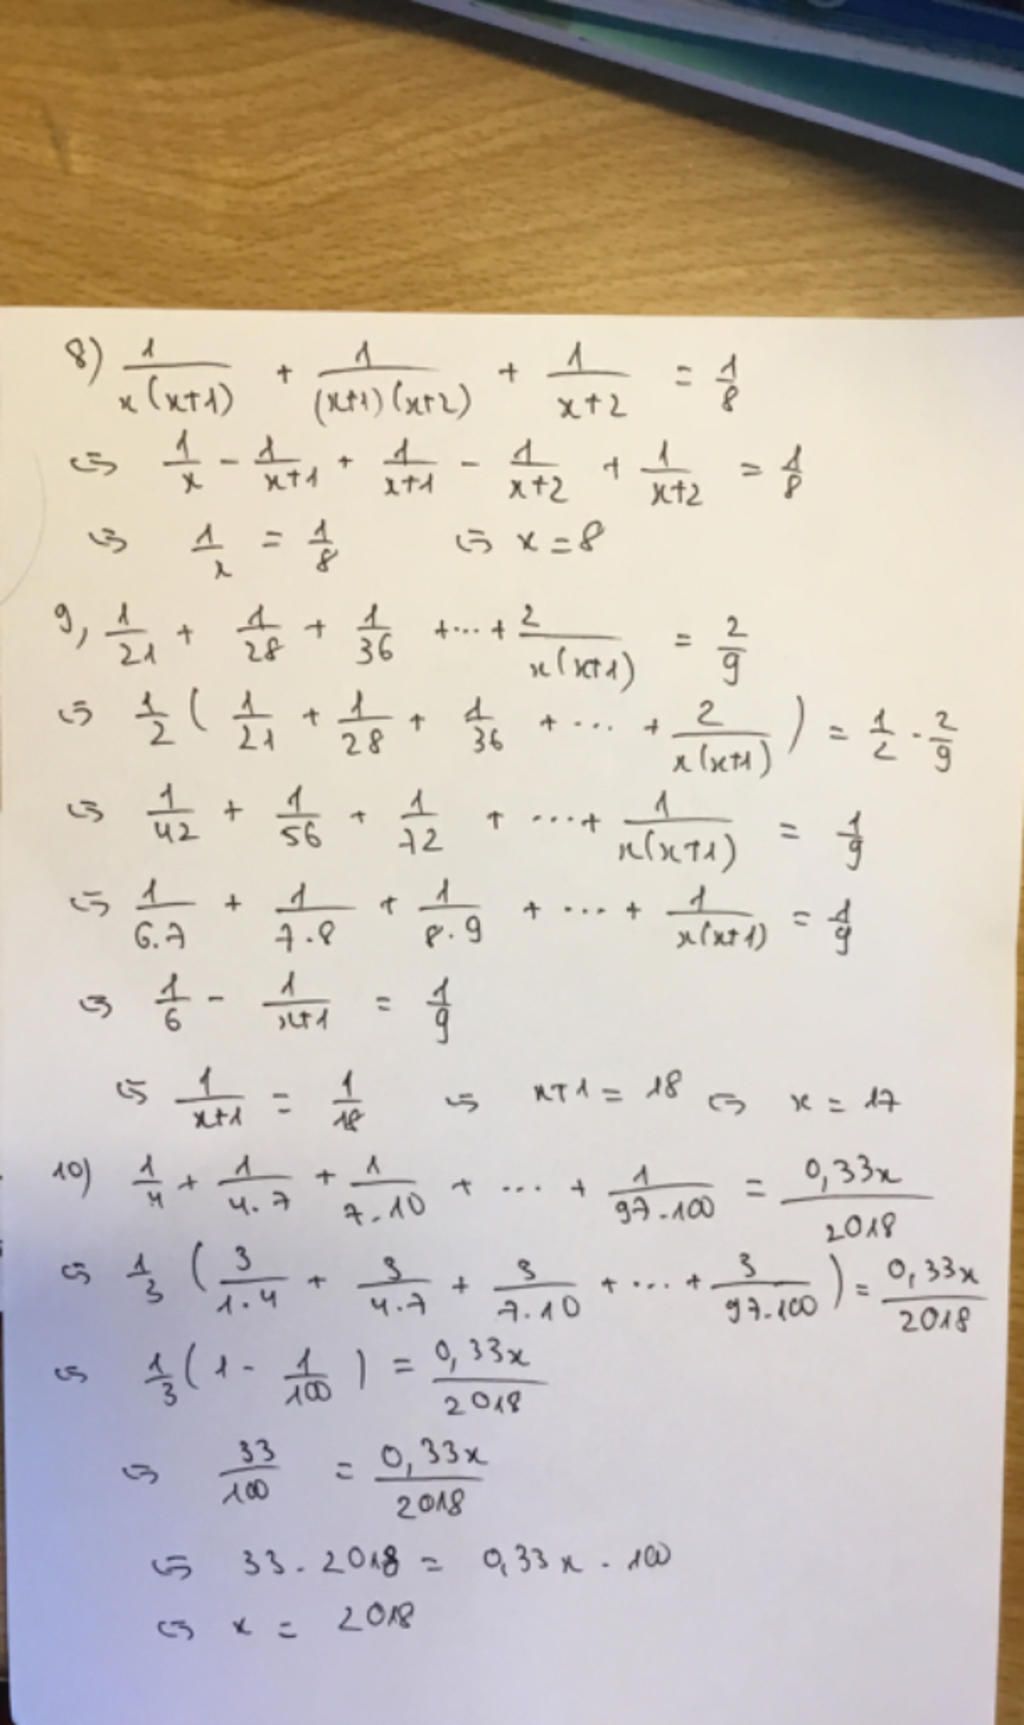 8) 1/(x(x+1)) + 1/((x+1)(x+2)) + 1/(x+2) = 1/8
⇔ 1/x - 1/(x+1) + 1/(x+1) - 1/(x+2) + 1/(x+2) = 1/8
⇔ 1/x = 1/8 ⇔ x = 8
9, 1/21 + 1/28 + 1/36 + ... + 2/(x(x+1)) = 2/9
⇔ 1/2 ( 1/21 + 1/28 + 1/36 + ... + 2/(x(x+1)) ) = 1/2 . 2/9
⇔ 1/42 + 1/56 + 1/72 + ... + 1/(x(x+1)) = 1/9
⇔ 1/(6.7) + 1/(7.8) + 1/(8.9) + ... + 1/(x(x+1)) = 1/9
⇔ 1/6 - 1/(x+1) = 1/9
⇔ 1/(x+1) = 1/18 ⇔ x+1 = 18 ⇔ x = 17
10) 1/4 + 1/(4.7) + 1/(7.10) + ... + 1/(97.100) = 0,33x/2018
⇔ 1/3 ( 3/(1.4) + 3/(4.7) + 3/(7.10) + ... + 3/(97.100) ) = 0,33x/2018
⇔ 1/3 ( 1 - 1/100 ) = 0,33x/2018
⇔ 33/100 = 0,33x/2018
⇔ 33.2018 = 0,33x . 100
⇔ x = 2018